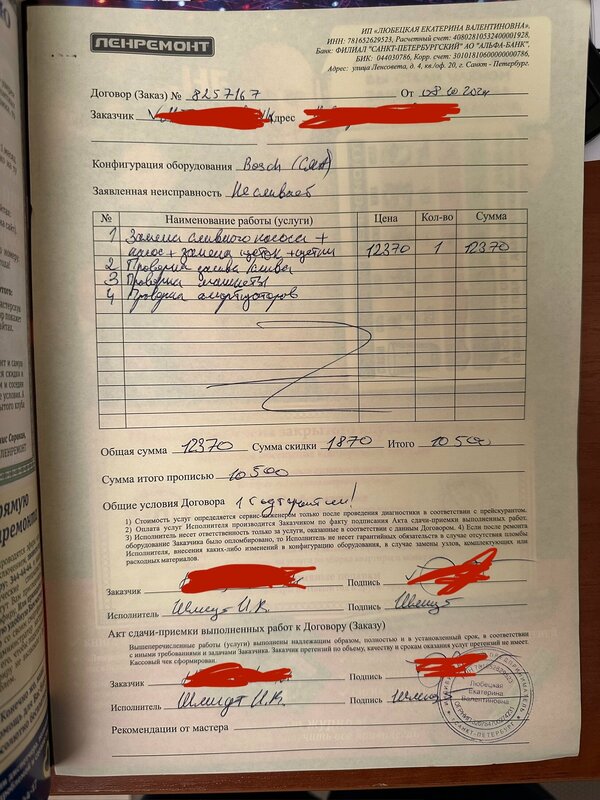 ЛЕНРЕМОНТ
ИП «ЛЮБЕЦКАЯ ЕКАТЕРИНА ВАЛЕНТИНОВНА»,
ИНН: 781652629523, Расчетный счет: 40802810532400001928,
Банк: ФИЛИАЛ "САНКТ-ПЕТЕРБУРГСКИЙ" АО "АЛЬФА-БАНК",
БИК: 044030786, Корр. счет: 30101810600000000786,
Адрес: улица Ленсовета, д. 4, кв./оф. 20, г. Санкт - Петербург.
Договор (Заказ) № 8257167 От 08 10 2024
Заказчик Адрес
Конфигурация оборудования Bosch (СМА)
Заявленная неисправность Не сливает
№ Наименование работы (услуги) Цена Кол-во Сумма
1 Замена сливного насоса +
+ замена щеток + 12370 1 12370
2 Проверка залива/слива
3 Проверка манжеты
4 Проверка амортизаторов
Общая сумма 12370 Сумма скидки 1870 Итого 10 500
Сумма итого прописью 10 500
Общие условия Договора
1) Стоимость услуг определяется сервис-инженером только после проведения диагностики в соответствии с прейскурантом.
2) Оплата услуг Исполнителя производится Заказчиком по факту подписания Акта сдачи-приемки выполненных работ.
3) Исполнитель несет ответственность только за услуги, оказанные в соответствии с данным Договором. 4) Если после ремонта
оборудование Заказчика было опломбировано, то Исполнитель не несет гарантийных обязательств в случае отсутствия пломбы
Исполнителя, внесения каких-либо изменений в конфигурацию оборудования, в случае замены узлов, комплектующих или
расходных материалов.
Заказчик Подпись
Исполнитель Шмидт И.К. Подпись Шмидт
Акт сдачи-приемки выполненных работ к Договору (Заказу)
Вышеперечисленные работы (услуги) выполнены надлежащим образом, полностью и в установленный срок, в соответствии
с иными требованиями и задачами Заказчика. Заказчик претензий по объему, качеству и срокам оказания услуг претензий не имеет.
Кассовый чек сформирован.
Заказчик Подпись
Исполнитель Шмидт И.К. Подпись Шмидт
Любецкая
Екатерина
Валентиновна
САНКТ-ПЕТЕРБУРГ
Рекомендации от мастера